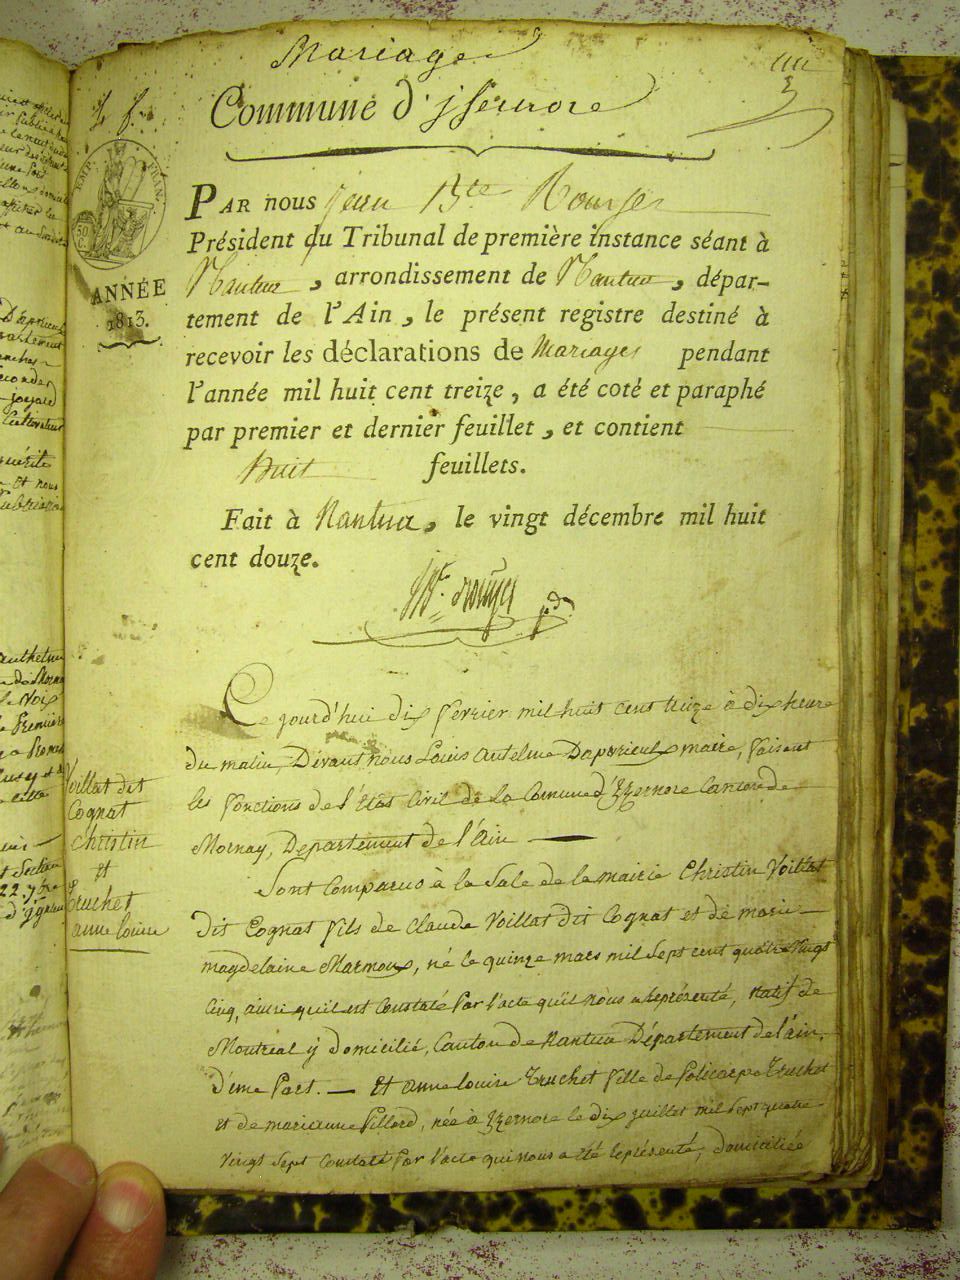 Mariage
Commune d'jsernore
EMP. FRAN.
50 C.
ANNÉE
1813.
PAR nous jean Bte Rouyer
Président du Tribunal de première instance séant à
Nantua, arrondissement de Nantua, dépar-
tement de l'Ain, le présent registre destiné à
recevoir les déclarations de Mariages pendant
l'année mil huit cent treize, a été coté et paraphé
par premier et dernier feuillet, et contient
huit feuillets.
Fait à Nantua, le vingt décembre mil huit
cent douze.
Voillat dit
Cognat
Christin
et
truchet
anne louise
Ce jourd'hui dix fevrier mil huit cent treize à dix heure
du matin, Devant nous Louis antelme Daprieul maire, faisant
les fonctions de l'Etat Civil de la Commune d'Yzernore Canton de
Mornay, Departement de l'ain —
Sont Comparus à la Sale de la mairie Christin Voillat
dit Cognat fils de Claude Voillat dit Cognat et de marie
magdelaine Marmoux, né le quinze mars mil Sept cent quatre vingt
Cinq, ainsi qu'il est Constaté Par l'acte qu'il nous a représenté, natif de
Montreal y domicilié, Canton de Nantua Département de l'ain,
d'une Part. — Et anne louise Truchet fille de Policarpe Truchet
et de marianne Pillard, née à Yzernore le dix juillet mil Sept quatre
vingt Sept Constaté Par l'acte qui nous a été représenté, domiciliée